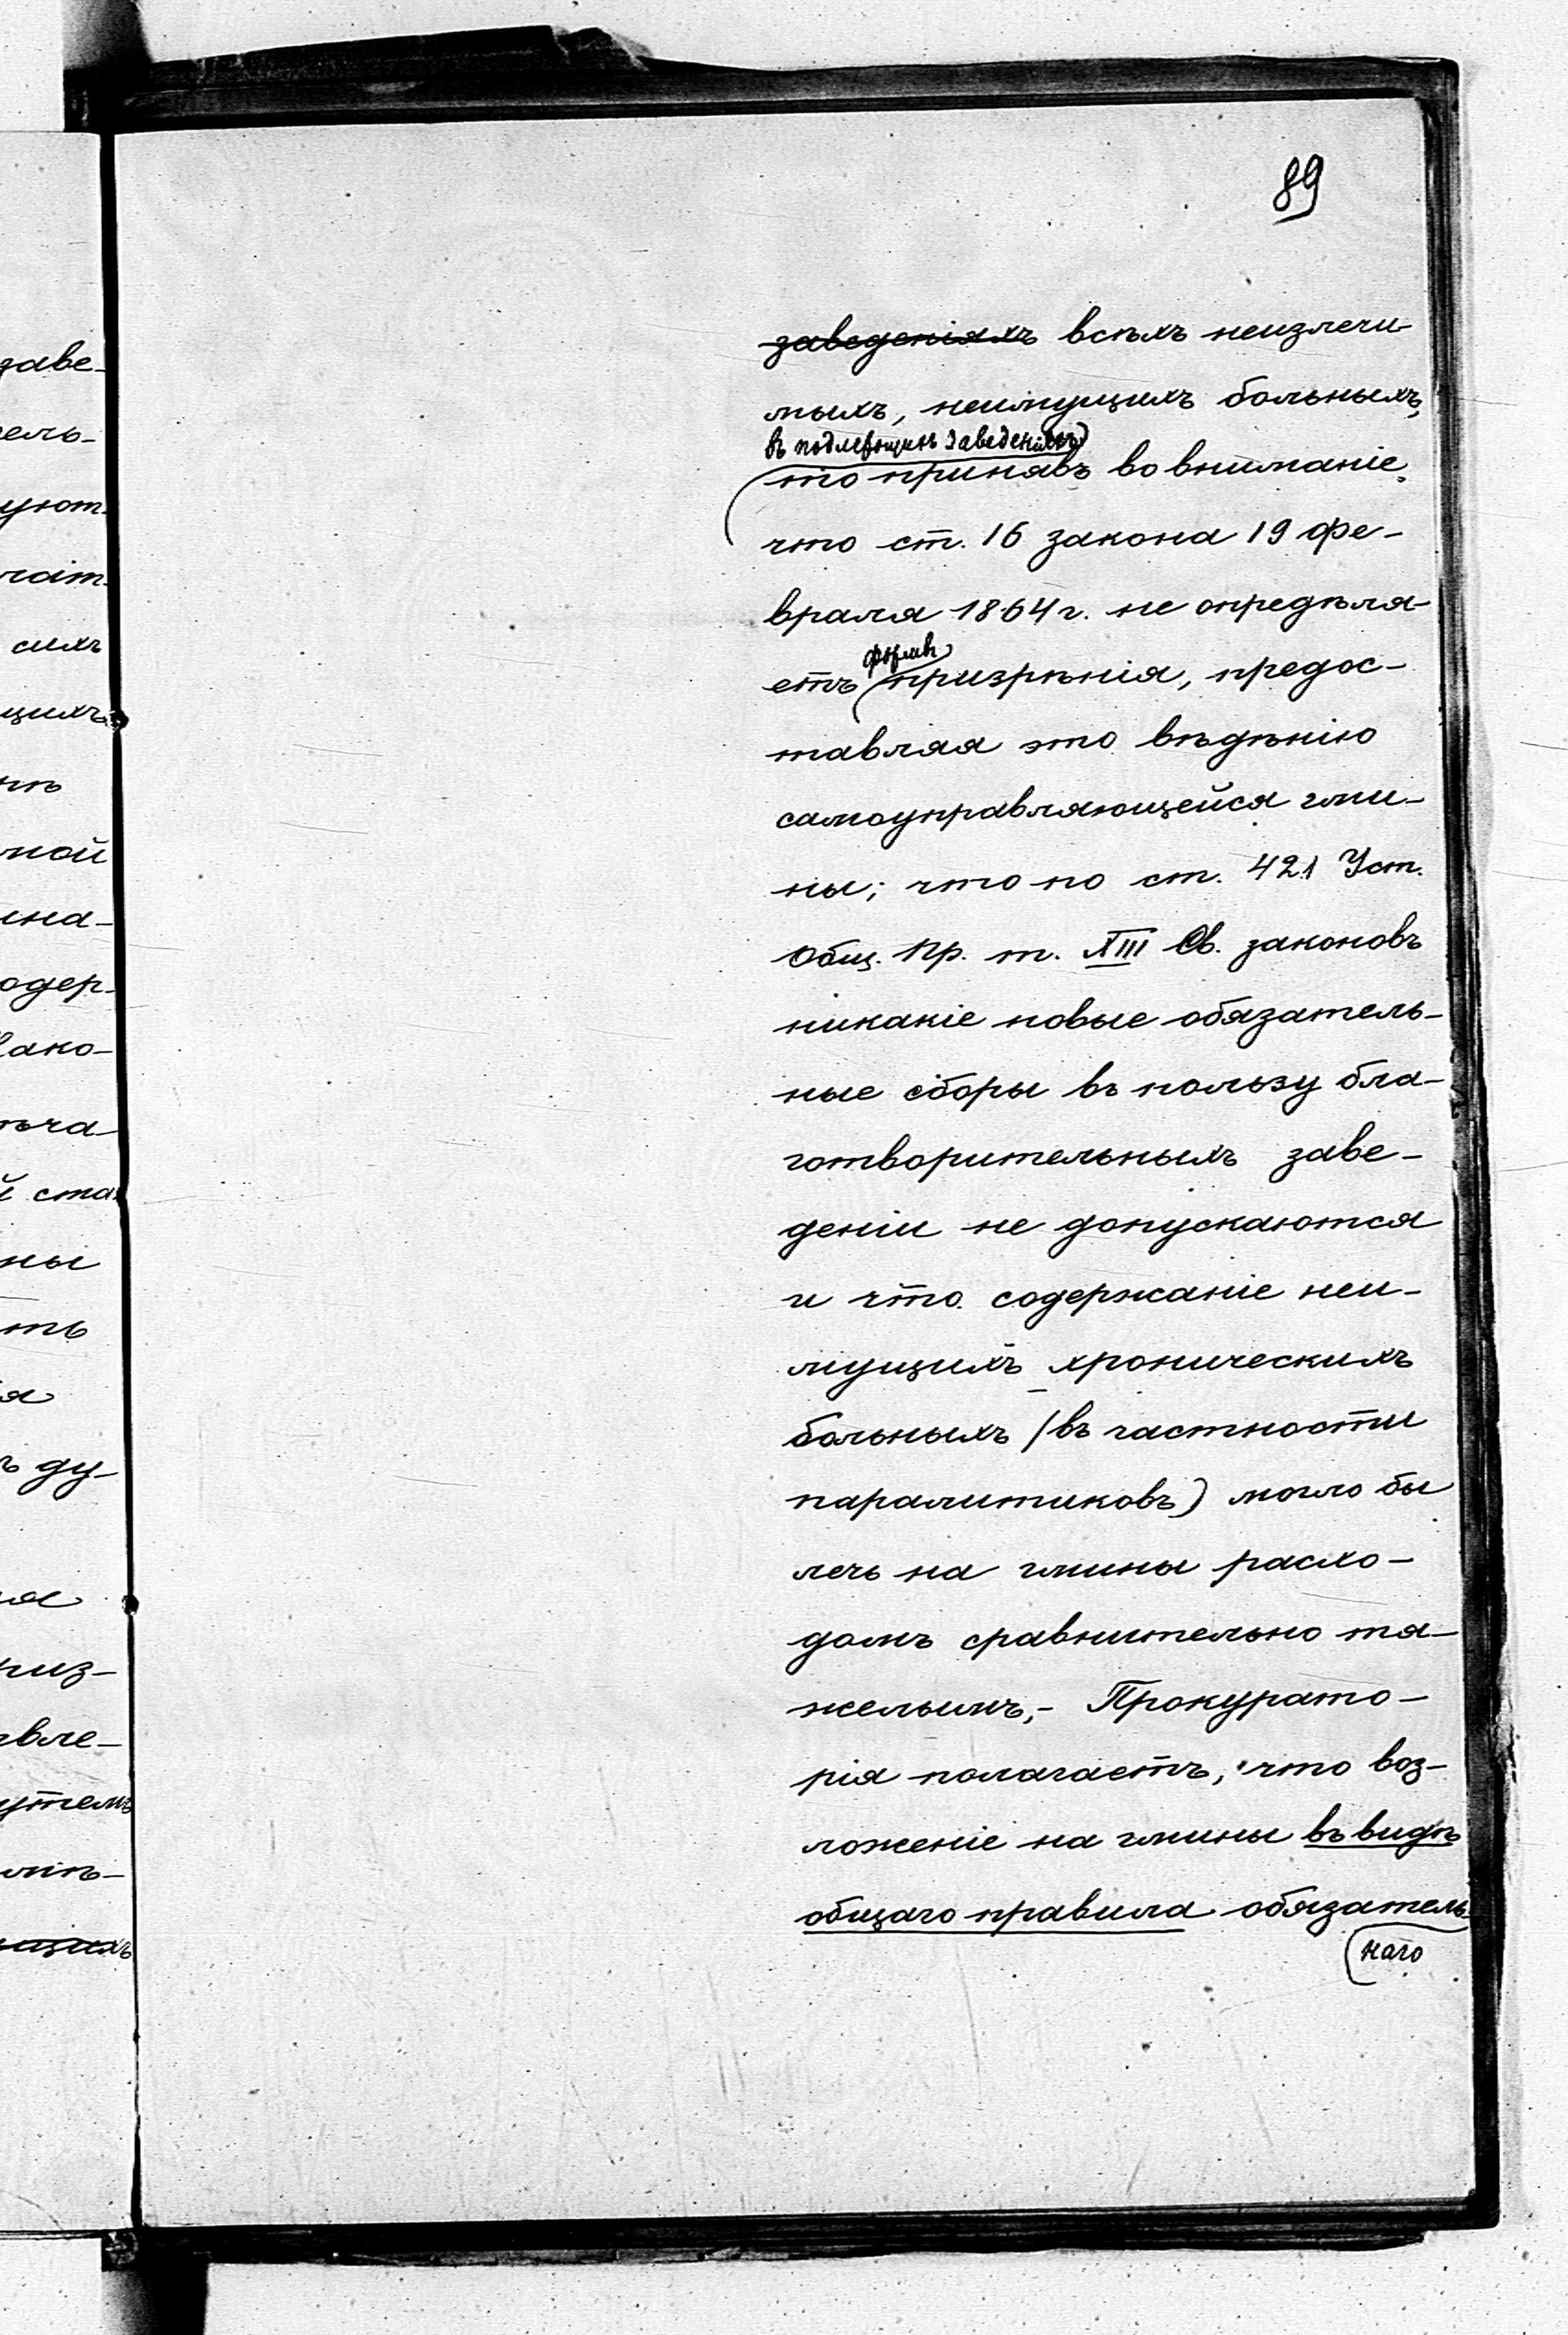 89
заведеніяхъ всѣхъ неизлечи-
мыхъ, неимущихъ больныхъ,
въ подлежщихъ заведеніяхъ
то принявъ во вниманіе,
что ст. 16 закона 19 фе-
враля 1864 г. не опредѣля-
формъ
етъ призрѣнія, предос-
тавляя это вѣдѣнію
самоуправляющейся гми-
ны; что по ст. 421 Уст.
Общ. Пр. т. XIII Св. законовъ
никакіе новые обязатель-
ные сборы въ пользу бла-
готворительныхъ заве-
деніи не допускаются
и что содержаніе неи-
мущихъ хроническихъ
больныхъ (въ частности
паралитиковъ) могло бы
лечь на гмины расхо-
домъ сравнительно тя-
желымъ,- Прокурато-
рія полагаетъ, что воз-
ложеніе на гмины въ видѣ
общаго правила обязатель
наго
заве-
ель-
уют.
сихъ
щихъ
ной
ина-
одер-
ако-
ѣча-
й ста
ны
ть
я
ъ ду-
ія
риз-
вле-
утемъ
мѣ-
ющихъ